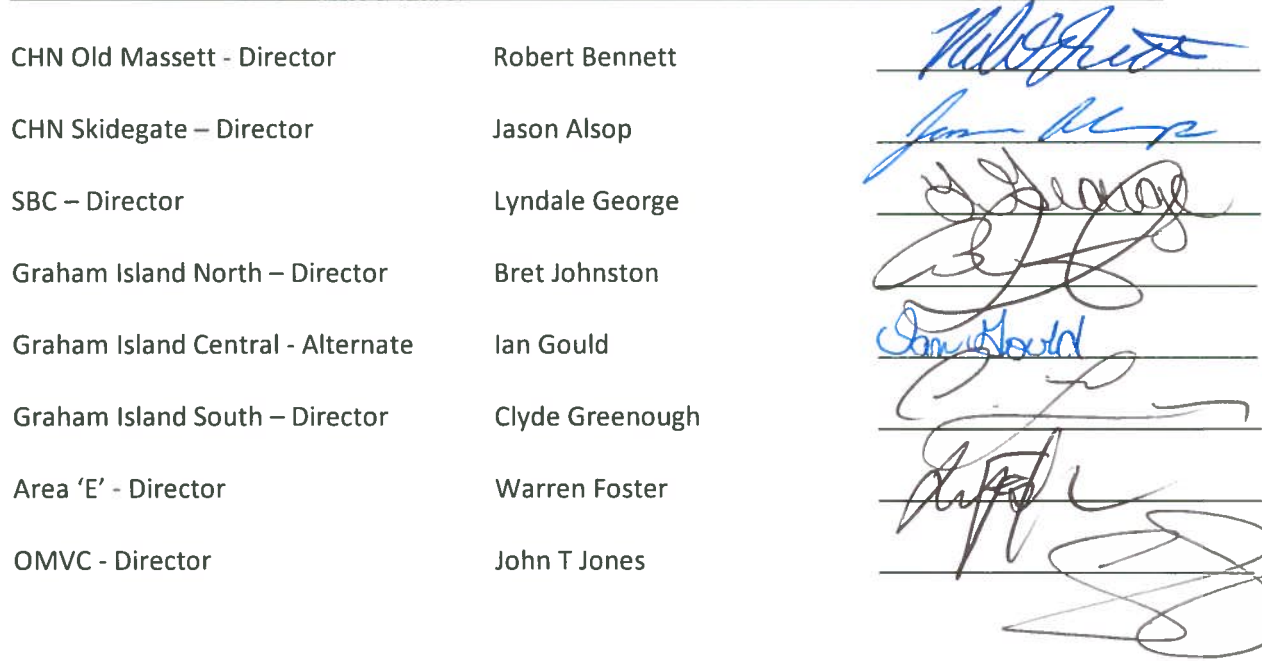 CHN Old Massett - Director Robert Bennett
CHN Skidegate – Director Jason Alsop Jason Alsop
SBC – Director Lyndale George L George
Graham Island North – Director Bret Johnston
Graham Island Central - Alternate Ian Gould Ian Gould
Graham Island South – Director Clyde Greenough
Area ‘E’ - Director Warren Foster
OMVC - Director John T Jones